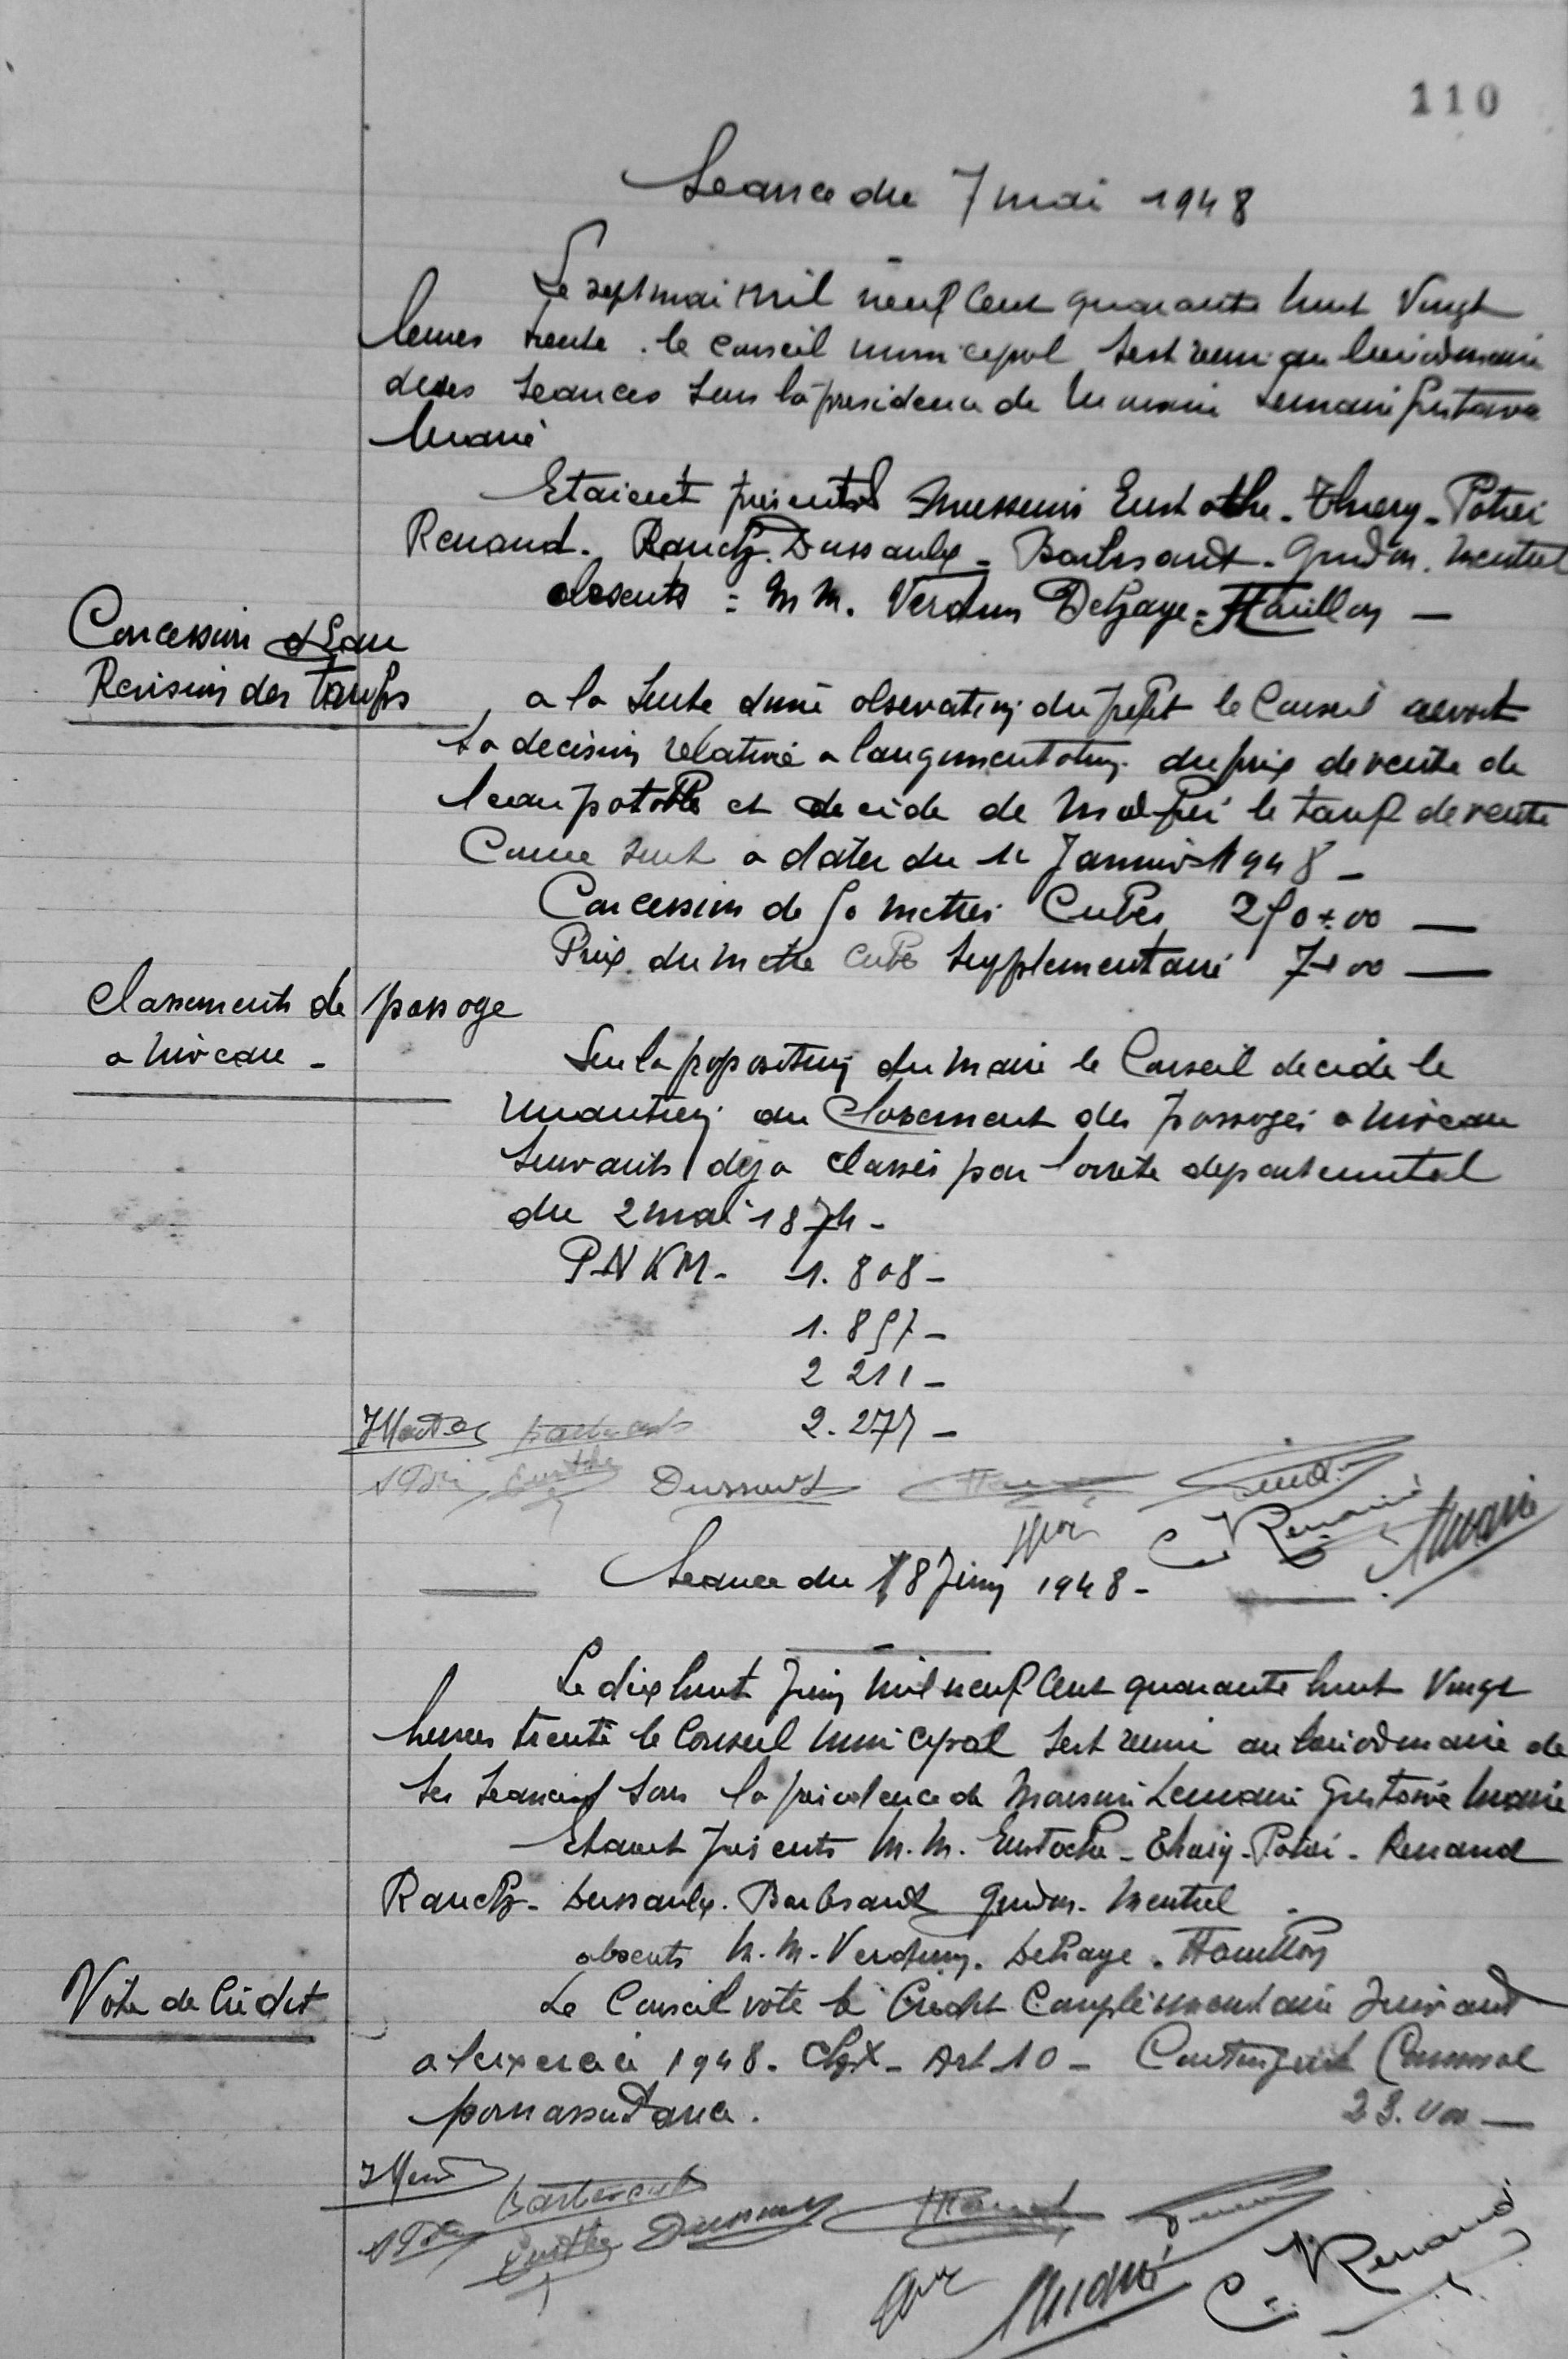 110
Seance du 7 mai 1948
Le sept mai mil neuf cent quarante huit Vingt
heures trente . le Conseil municipal sest reuni au lieu ord
de ses seances sous la presidence de Lemaire Gustave
Maire
Etaient presents Messieurs Eustache - Thiery - Potier
Renaud. Rauch. Dussaulx - Barbesant - Guidon. Mentrel
absents = M M. Verdun Delhaye = Houillon —
Concession d'Eau
Revision des tarifs
a la suite dune observation du prefet le Conseil
sa decision relative a laugmentation du prix de vente de
leau potable et decide de modifier le tarif de vente
Comme suit a dater du 1er Janvier 1948 -
Concession de 50 metres Cubes 250+00 —
Prix du metre cube supplementaire 7+00 —
Classements de passage
a niveau -
Sur la proposition du maire le Conseil decide le
maintien du Classement des passages a niveau
suivants deja classés par l'arrete departemental
du 2 mai 1874 -
P N KM - 1.808 -
1.857 -
2 211 -
2.275 -
JMentrel Barbesant
Dussaulx
C Renaud Lemaire
Seance du 18 Juin 1948 -
Le dix huit Juin mil neuf Cent quarante huit Vingt
heures trente le Conseil municipal sest reuni au lieu ordinaire de
ses seances sous la presidence de Monsieur Lemaire Gustave Maire
Etaient presents M. M. Eustache - Thiery - Potier - Renaud
Rauch - Dussaulx. Barbesant Guidon - Mentrel
absents M. M. Verdun. Delhaye. Houillon
Vote de Crédit
Le Conseil vote le Credit Complementaire suivant
a lexercice 1948 - Chp X - Art 10 - Contingent Communal
pour assistance. 23.000 —
JMentrel
Barbesant
Dussaulx
C Renaud